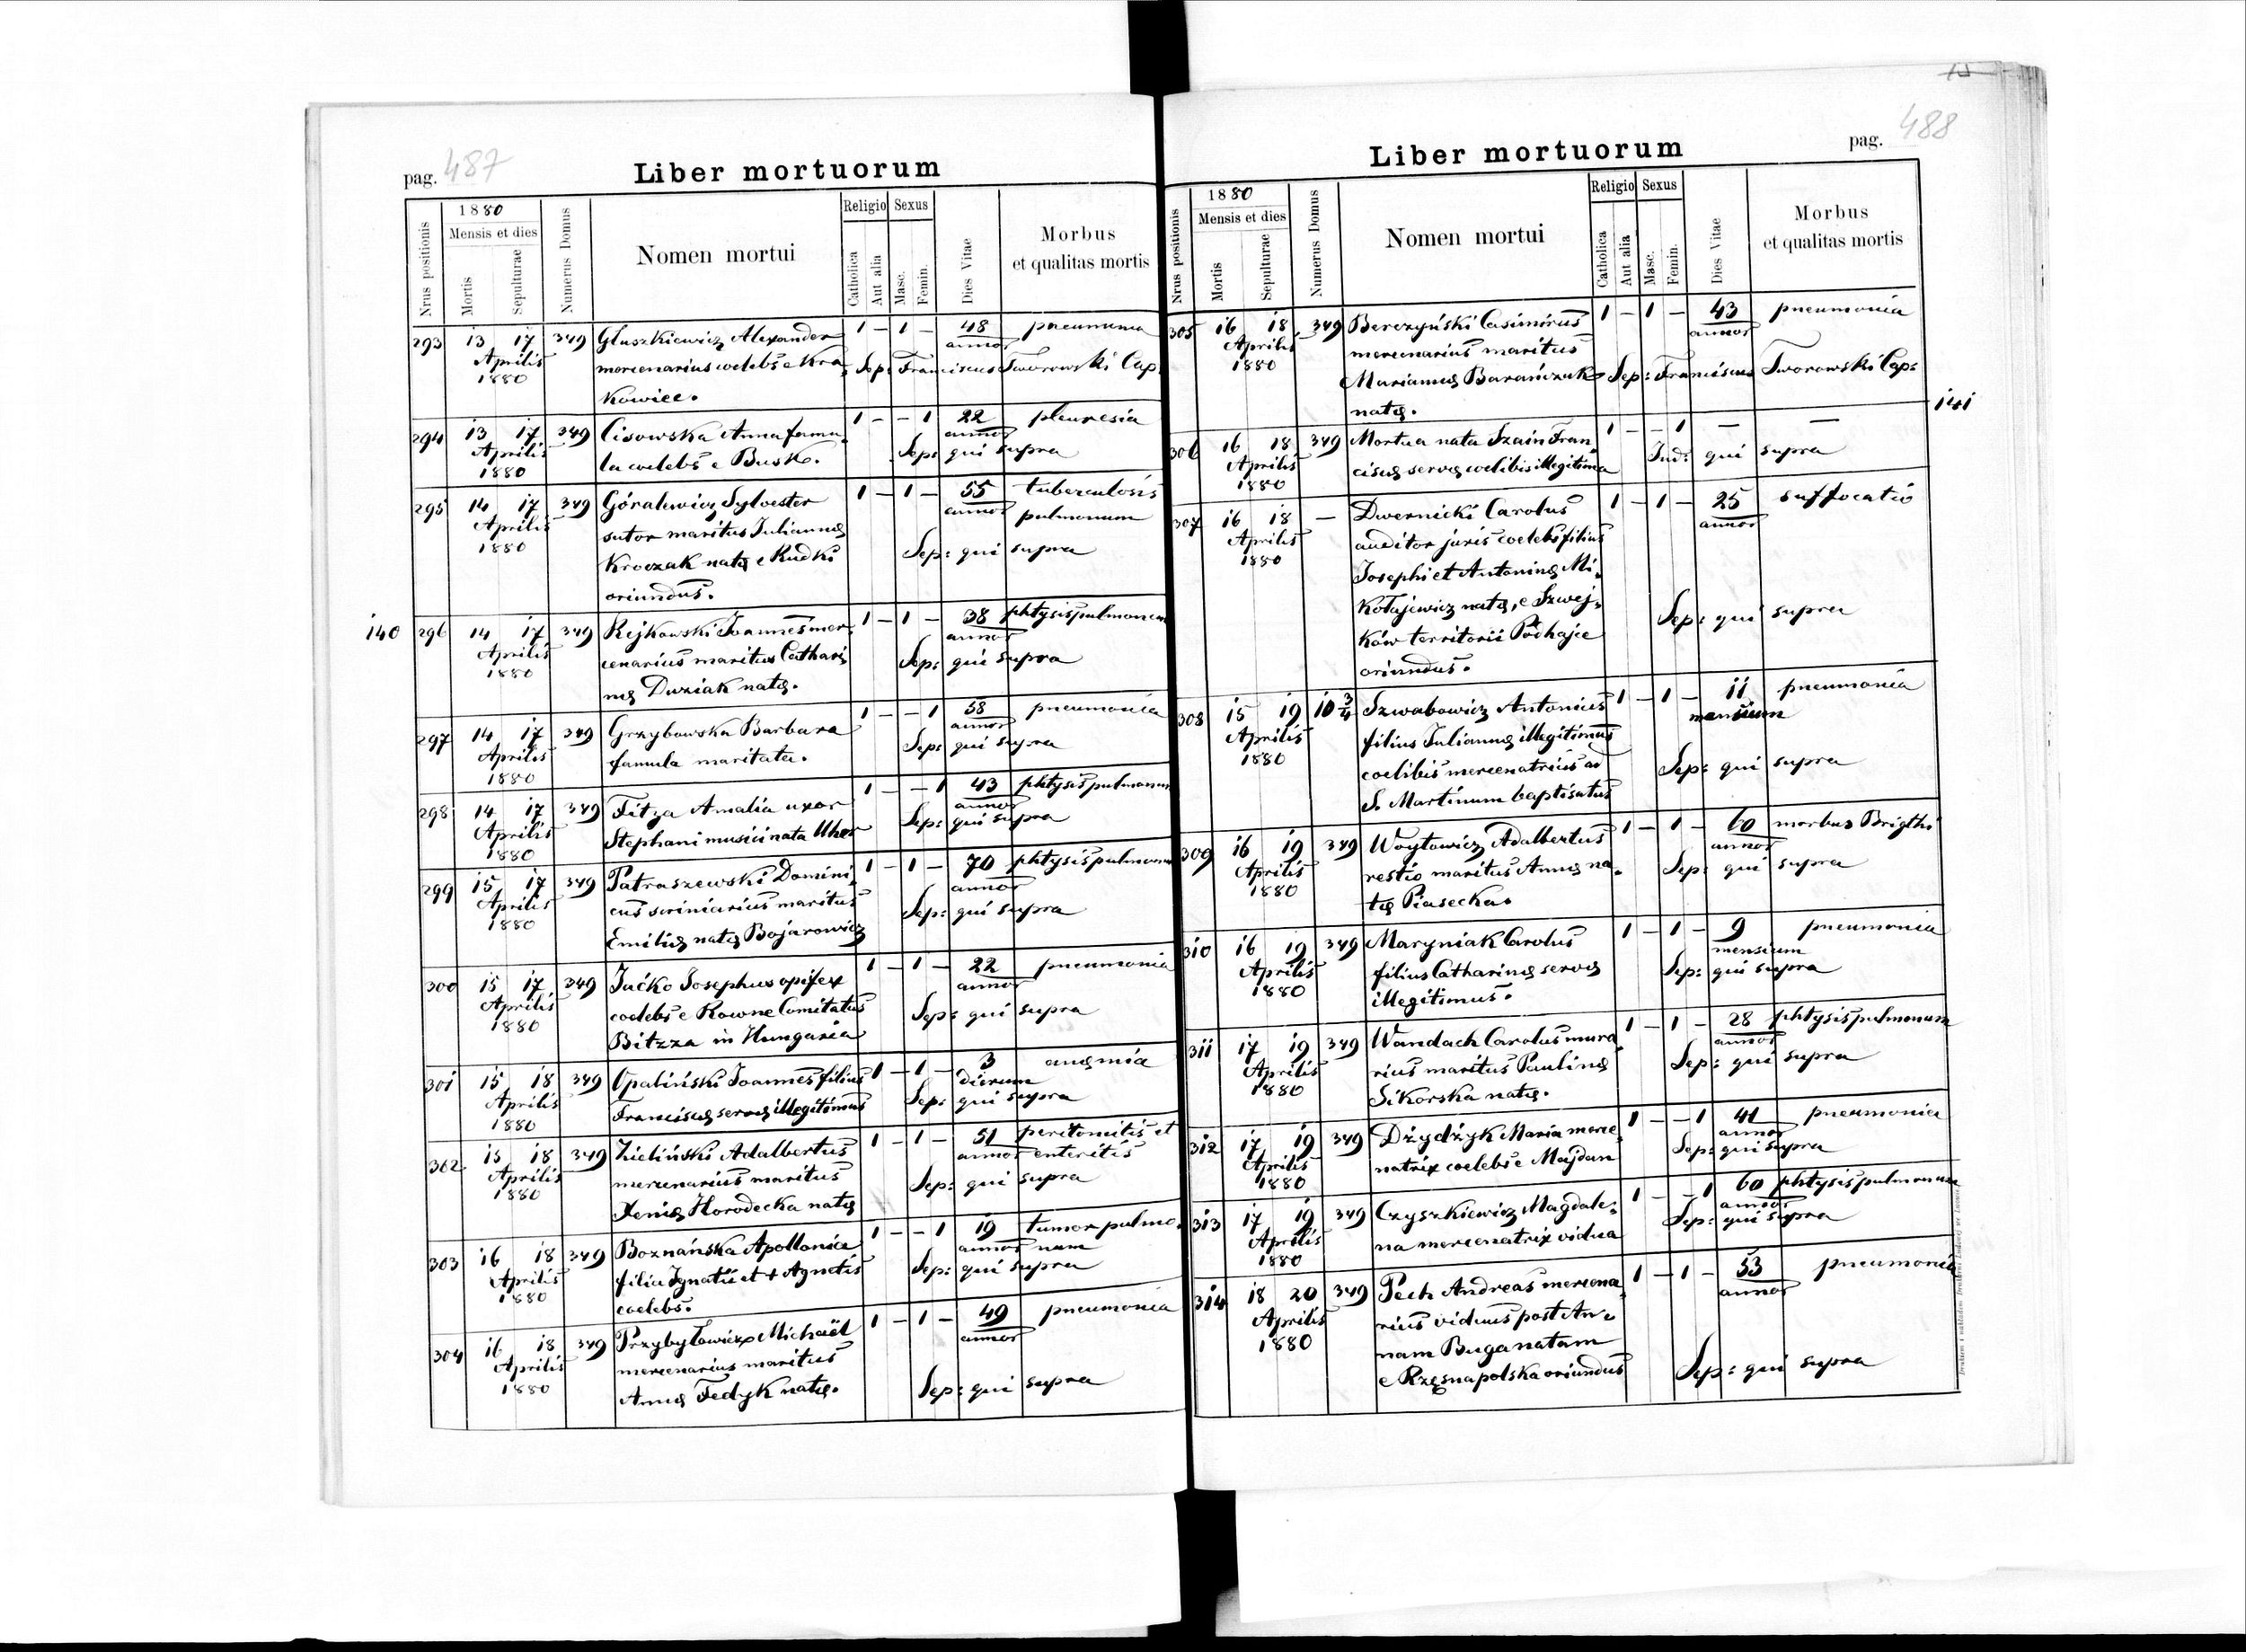 pag. 487 Liber mortuorum
Nrus positionis
1880
Mensis et dies
Mortis
Sepulturae
Numerus Domus
Nomen mortui
Religio
Catholica
Aut alia
Sexus
Masc.
Femin.
Dies Vitae
Morbus
et qualitas mortis
293 13 17 349 Gluszkiewicz Alexander 1 – 1 – 48 pneumonia
Aprilis mercenarius coelebs e Kra annor
1880 kowiec. Sep: Franciscus Tworowski Cap.
294 13 17 349 Cisowska Anna famu 1 – – 1 22 pleuresia
Aprilis la coelebs e Busk. annor
1880 Sep: qui supra
295 14 17 349 Góralewicz Sylvester 1 – 1 – 55 tuberculosis
Aprilis sutor maritus Juliannę annor pulmonum
1880 Kroczak natę e Rudki Sep: qui supra
oriundus.
140 296 14 17 349 Rejkowski Joannes mer 1 – 1 – 38 phtysis pulmonum
Aprilis cenarius maritus Cathari annor
1880 nę Duziak natę. Sep: qui supra
297 14 17 349 Grzybowska Barbara 1 – – 1 58 pneumonia
Aprilis famula maritata. annor
1880 Sep: qui supra
298 14 17 349 Fitza Amalia uxor 1 – – 1 43 phtysis pulmonum
Aprilis Stephani musici nata Uher annor
1880 Sep: qui supra
299 15 17 349 Patraszewski Domini 1 – 1 – 70 phtysis pulmonum
Aprilis cus scriniarius maritus annor
1880 Emilię natę Bojarowicz Sep: qui supra
300 15 17 349 Jućko Josephus opifex 1 – 1 – 22 pneumonia
Aprilis coelebs e Rowne Comitatus annor
1880 Bitzza in Hungaria Sep: qui supra
301 15 18 349 Opaliński Joannes filius 1 – 1 – 3 anęmia
Aprilis Franciscę servę illegitimus dierum
1880 Sep: qui supra
302 15 18 349 Zieliński Adalbertus 1 – 1 – 51 peritonitis et
Aprilis mercenarius maritus annor enteritis
1880 Xenię Horodecka natę Sep: qui supra
303 16 18 349 Boznańska Apollonia 1 – – 1 19 tumor pulmo
Aprilis filia Ignatii et + Agnetis annor num
1880 coelebs. Sep: qui supra
304 16 18 349 Przybyłowicz Michaël 1 – 1 – 49 pneumonia
Aprilis mercenarius maritus annor
1880 Annę Fedyk natę. Sep: qui supra
Liber mortuorum pag. 488
Nrus positionis
1880
Mensis et dies
Mortis
Sepulturae
Numerus Domus
Nomen mortui
Religio
Catholica
Aut alia
Sexus
Masc.
Femin.
Dies Vitae
Morbus
et qualitas mortis
305 16 18 349 Berezyński Casimirus 1 – 1 – 43 pneumonia
Aprilis mercenarius maritus annor
1880 Mariannę Barańczuk Sep: Franciscus Tworowski Cap:
natę.
141
306 16 18 349 Mortua nata Szain Fran 1 – – 1 — —
Aprilis ciscę servę coelibis illegitima Ind: qui supra
1880
307 16 18 – Dwernicki Carolus 1 – 1 – 25 suffocatio
Aprilis auditor juris coelebs filius annor
1880 Josephi et Antoninę Mi
kołajewicz natę, e Szwej
ków territorii Podhajce Sep: qui supra
oriundus.
308 15 19 10 3/4 Szwabowicz Antonius 1 – 1 – 11 pneumonia
Aprilis filius Juliannę illegitimus mensium
1880 coelibis mercenatricis ad Sep: qui supra
S. Martinum baptisatus
309 16 19 349 Woytowicz Adalbertus 1 – 1 – 60 morbus Brigthi
Aprilis restio maritus Annę na annor
1880 tę Piasecka. Sep: qui supra
310 16 19 349 Maryniak Carolus 1 – 1 – 9 pneumonia
Aprilis filius Catharinę servę mensium
1880 illegitimus. Sep: qui supra
311 17 19 349 Wandach Carolus mura 1 – 1 – 28 phtysis pulmonum
Aprilis rius maritus Paulinę annor
1880 Sikorska natę. Sep: qui supra
312 17 19 349 Dżydżyk Maria merce 1 – – 1 41 pneumonia
Aprilis natrix coelebs e Majdan annor
1880 Sep: qui supra
313 17 19 349 Czyszkiewicz Magdale 1 – – 1 60 phtysis pulmonum
Aprilis na mercenatrix vidua annor
1880 Sep: qui supra
314 18 20 349 Pech Andreas mercena 1 – 1 – 53 pneumonia
Aprilis rius viduus post An annor
1880 nam Buga natam
e Rzęsna polska oriundus Sep: qui supra